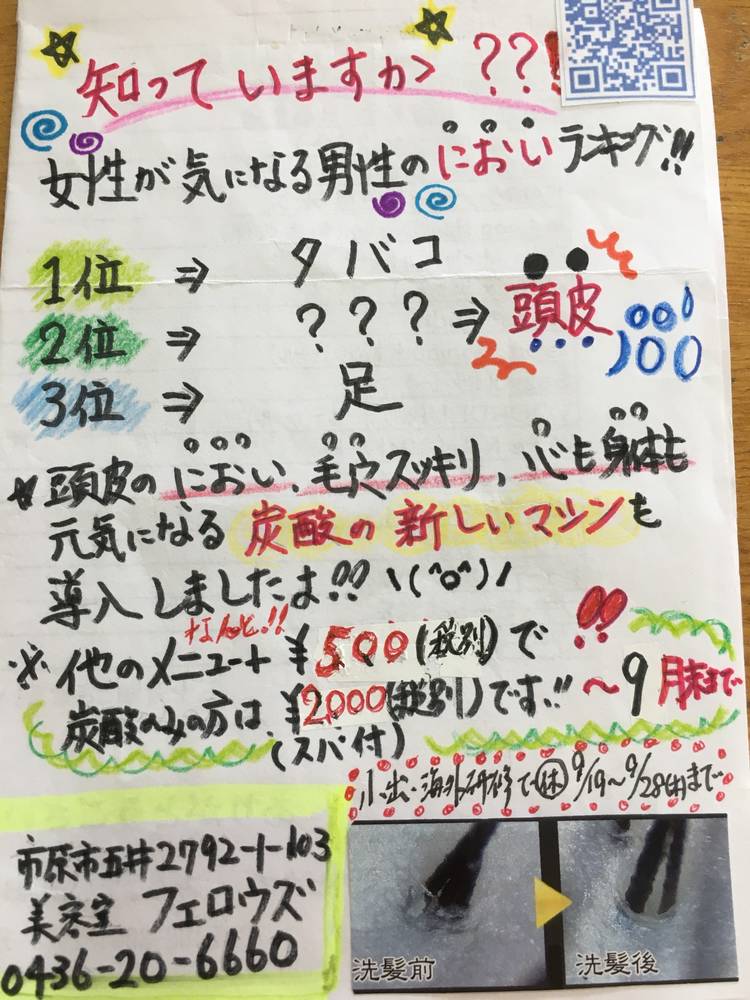 知っていますか???!
女性が気になる男性のにおいラキング!!
1位 ⇒ タバコ
2位 ⇒ ??? ⇒ 頭皮
3位 ⇒ 足
★頭皮のにおい、毛穴スッキリ、心も身体も
元気になる炭酸の新しいマシンも
導入しましたよ!! \(^o^)/
なんと!!
※他のメニュー+ ¥500(税別)で!!
炭酸のみの方は、¥2000(税別)です!! ~9月末まで
(スパ付)
小出 海外研修で㊡ 9/19~9/28(木)まで
市原市五井2792-1-103
美容室 フェロウズ
0436-20-6660
洗髪前
洗髪後